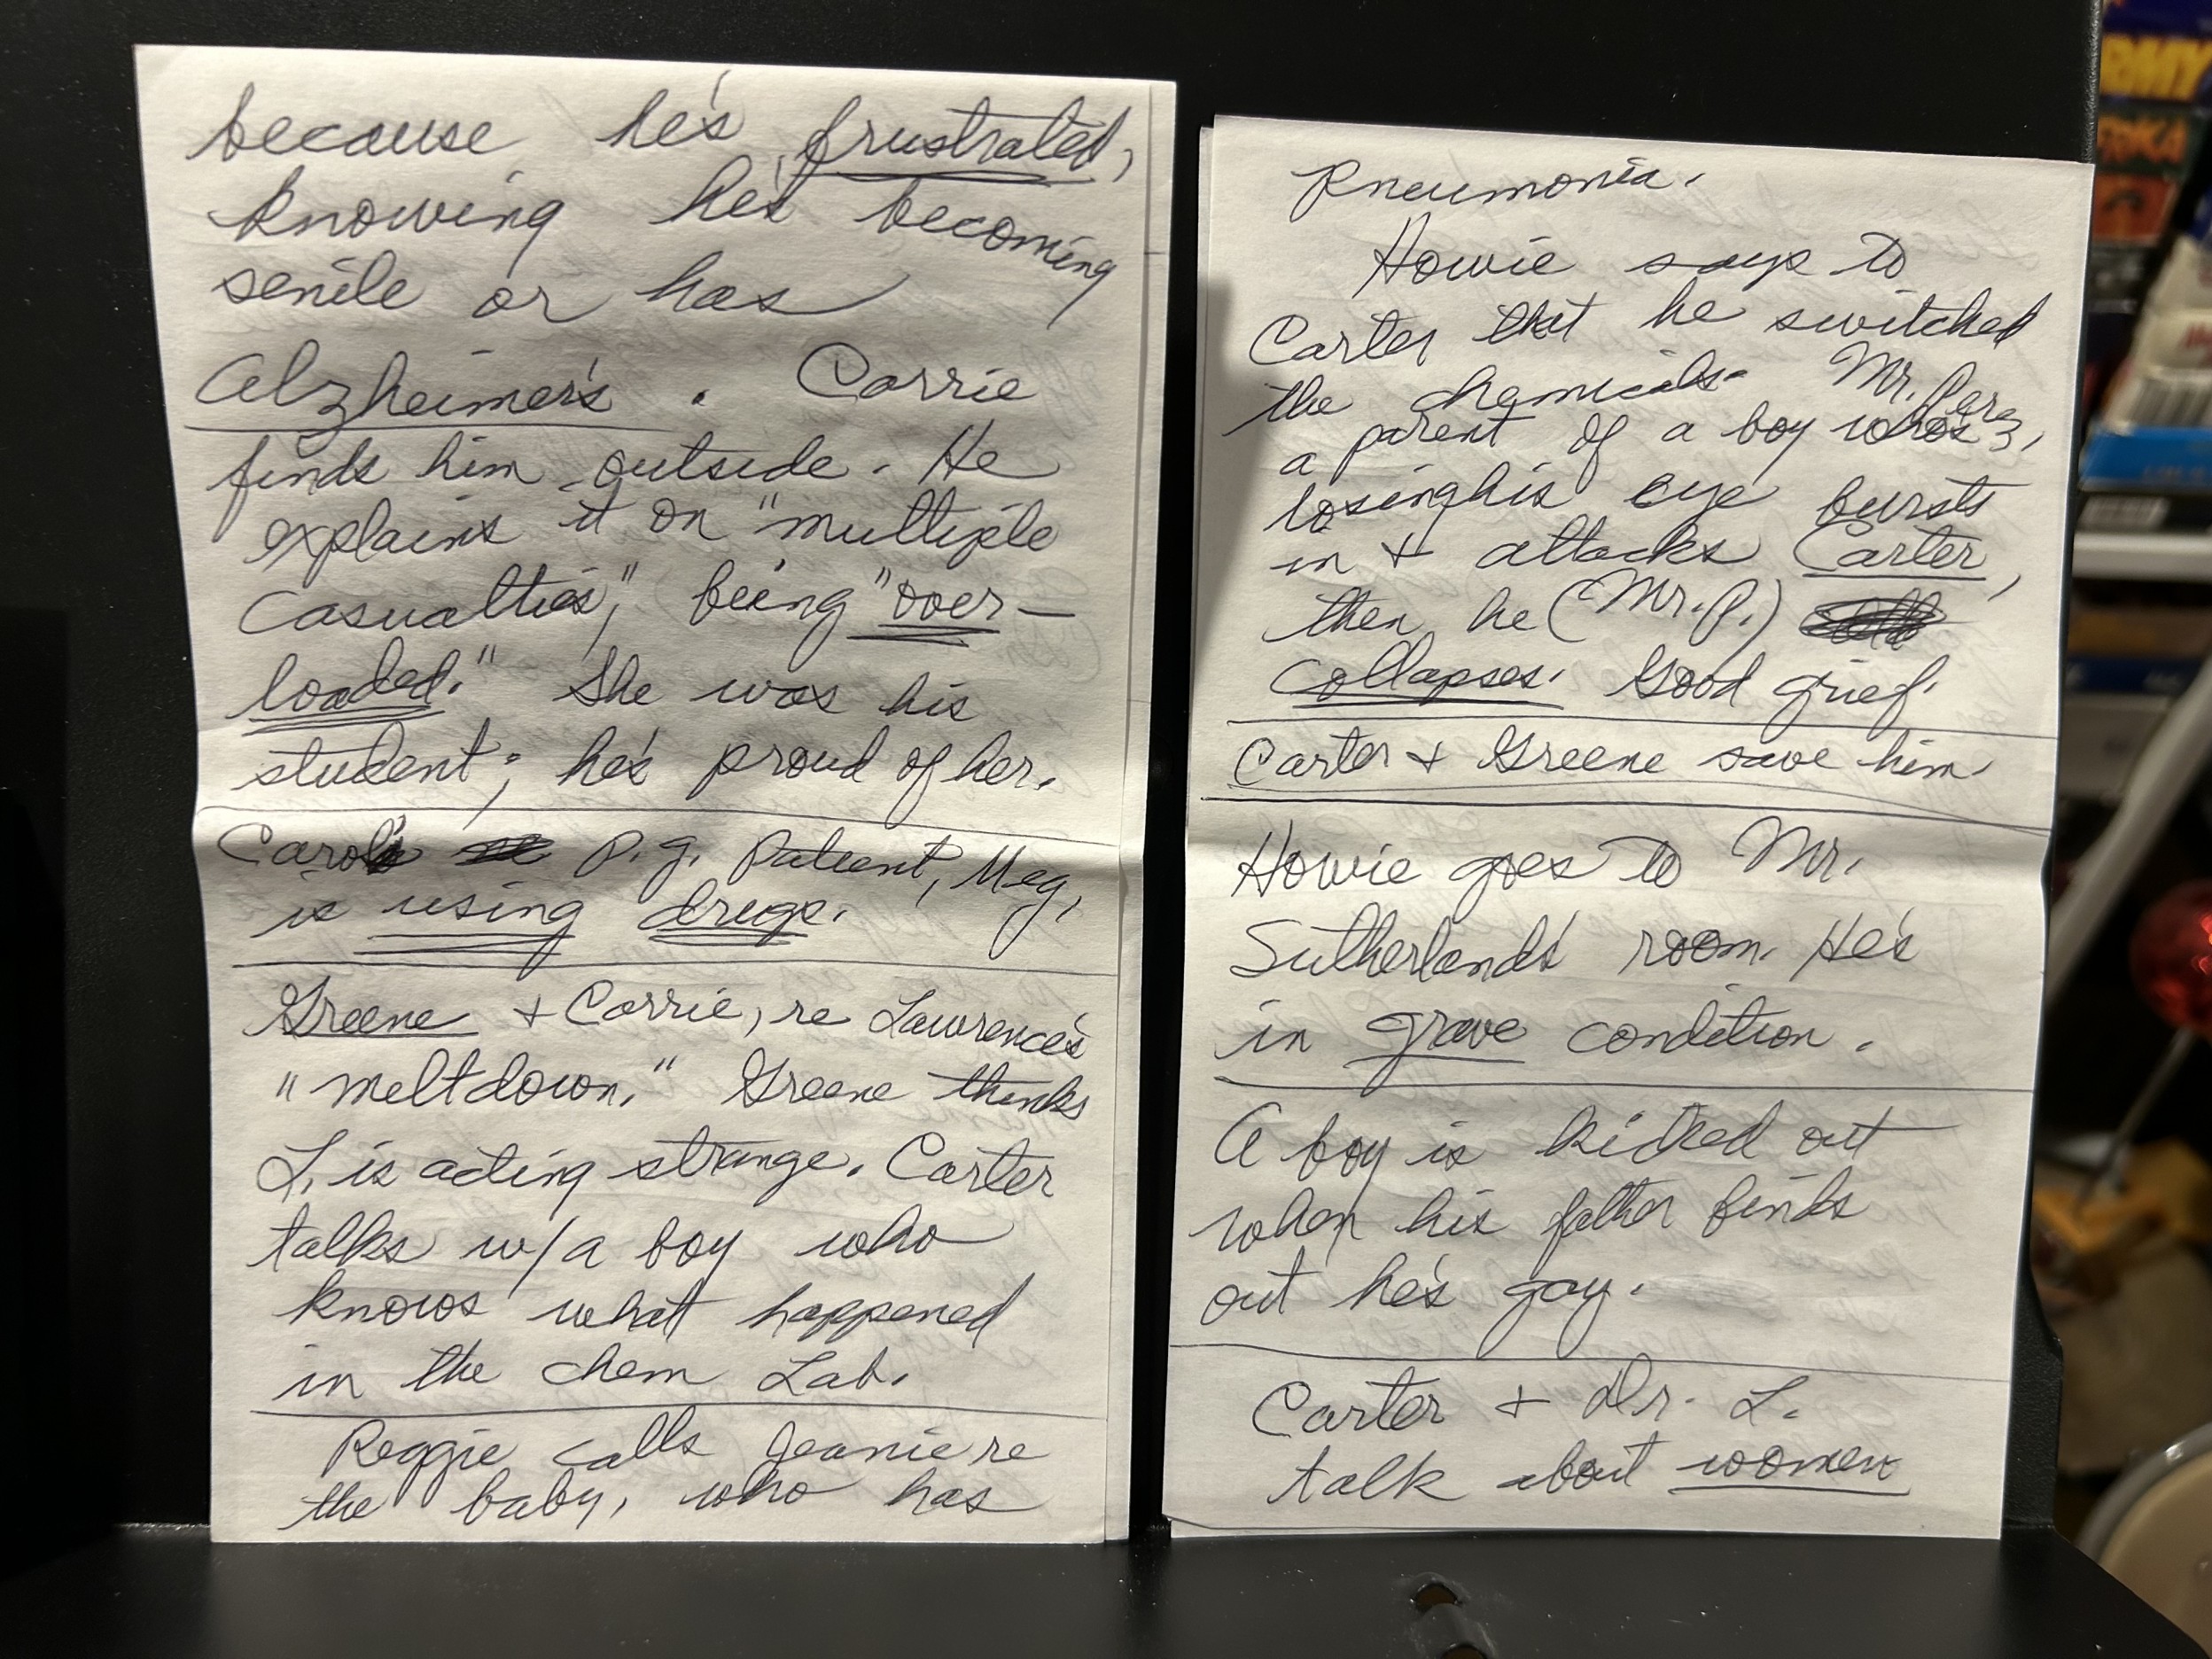 because he's frustrated,
knowing he's becoming
senile or has
Alzheimer's. Corrie
finds him outside. He
explains it on "multiple
casualties," being "over-
loaded." She was his
student; he's proud of her.
Carol's p.g. patient, Meg,
is using drugs.
Greene + Corrie, re Lawrence's
"meltdown." Greene thinks
L. is acting strange. Carter
talks w/a boy who
knows what happened
in the chem Lab.
Reggie calls Jeanie re
the baby, who has
Pneumonia.
Howie says to
Carter that he switched
the chemicals. Mr. Perez,
a parent of a boy who's
losing his eye bursts
in + attacks Carter,
then he (Mr. P.)
collapses. Good grief.
Carter + Greene save him.
Howie goes to Mr.
Sutherland's room. He's
in grave condition.
A boy is kicked out
when his father finds
out he's gay.
Carter + Dr. L.
talk about women
RMY
RIKA